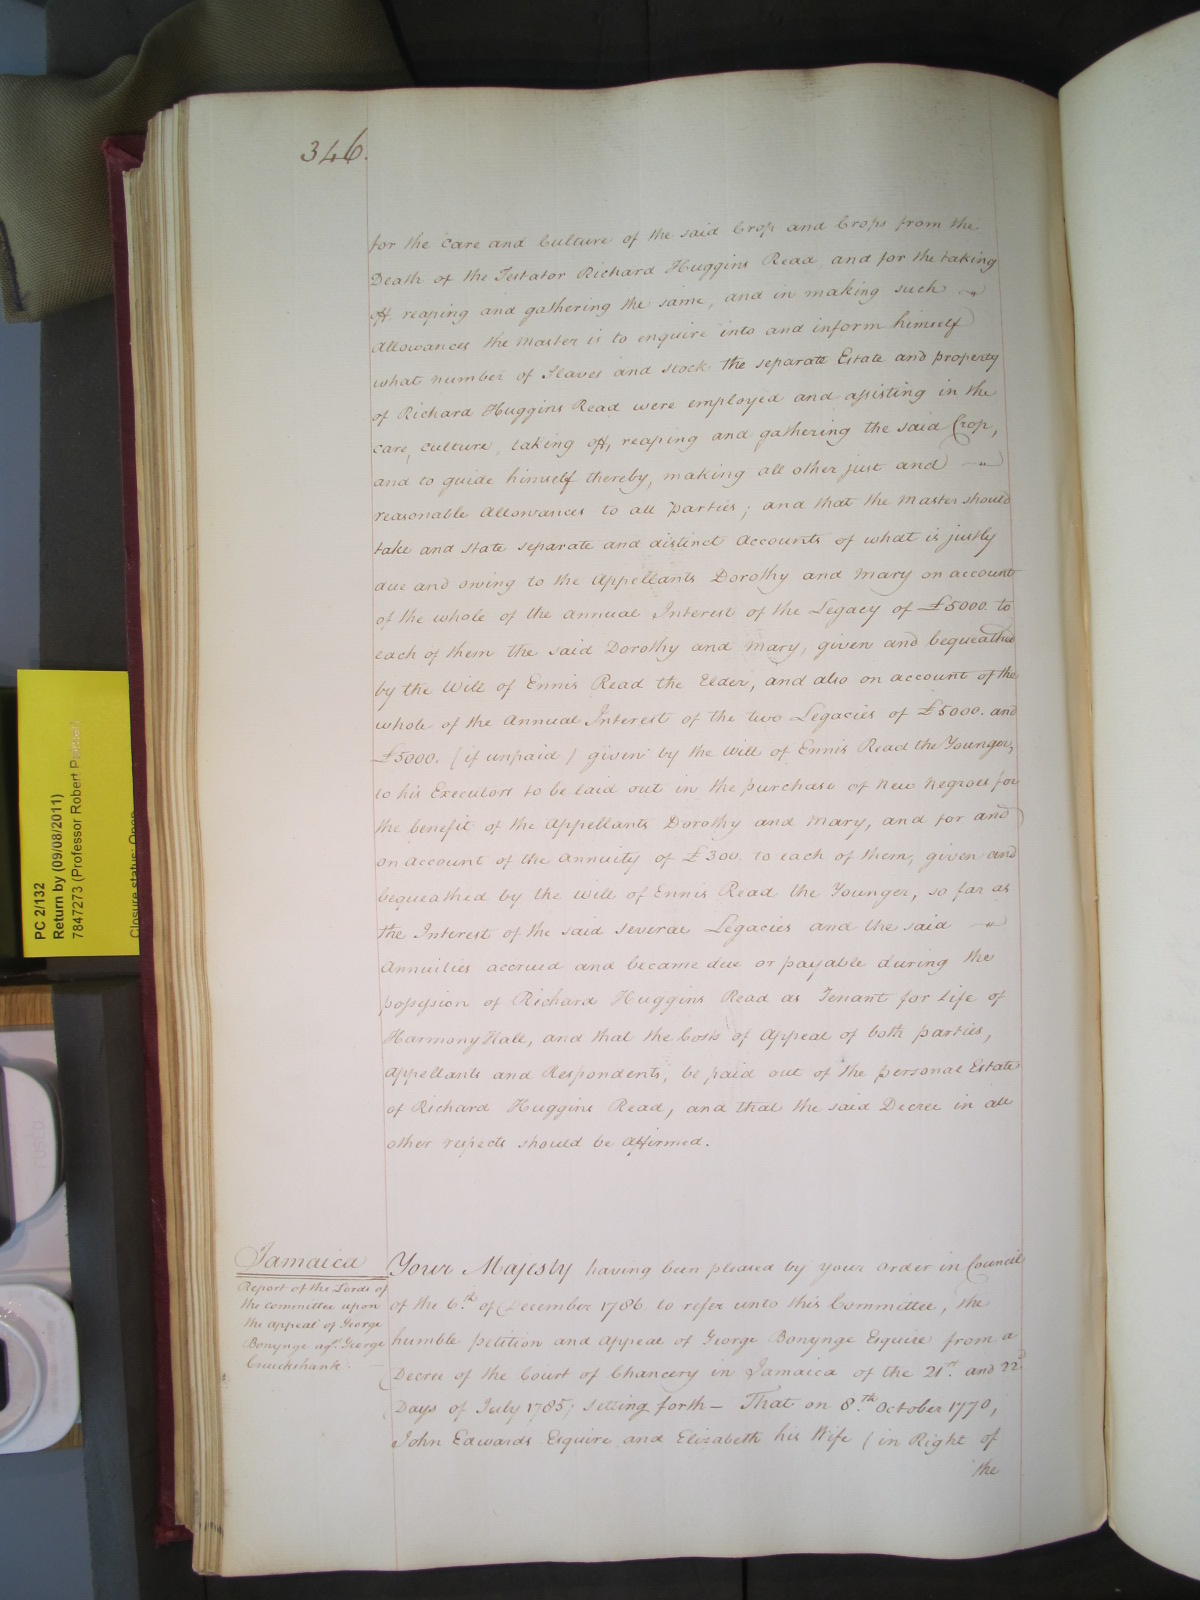 346.
for the Care and Culture of the said Crop and Crops from the
Death of the Testator Richard Huggins Read, and for the taking
off reaping and gathering the same, and in making such
Allowances the Master is to enquire into and inform himself
what number of Slaves and stock the separate Estate and property
of Richard Huggins Read were employed and assisting in the
care, culture, taking off, reaping and gathering the said Crop,
and to guide himself thereby, making all other just and
reasonable Allowances to all parties; and that the Master should
take and state separate and distinct Accounts of what is justly
due and owing to the Appellants Dorothy and Mary on account
of the whole of the annual Interest of the Legacy of £5000. to
each of them the said Dorothy and Mary, given and bequeathed
by the Will of Ennis Read the Elder, and also on account of the
whole of the Annual Interest of the two Legacies of £5000. and
£5000. (if unpaid) given by the Will of Ennis Read the Younger,
to his Executors to be laid out in the purchase of New Negroes for
the benefit of the Appellants Dorothy and Mary, and for and
on account of the Annuity of £300. to each of them, given and
bequeathed by the Will of Ennis Read the Younger, so far as
the Interest of the said several Legacies and the said
Annuities accrued and became due or payable during the
possession of Richard Huggins Read as Tenant for Life of
Harmony Hall, and that the Costs of Appeal of both parties,
Appellants and Respondents, be paid out of the personal Estate
of Richard Huggins Read, and that the said Decree in all
other respects should be affirmed.
Jamaica
Report of the Lords of
the Committee upon
the appeal of George
Bonynge agt. George
Cruickshank.
Your Majesty having been pleased by your Order in Council
of the 6th. of December 1786 to refer unto this Committee, the
humble petition and Appeal of George Bonynge Esquire from a
Decree of the Court of Chancery in Jamaica of the 21st. and 22d
Days of July 1785; setting forth – That on 8th. October 1770,
John Edwards Esquire and Elizabeth his Wife (in Right of
the
PC 2/132
Return by (09/08/2011)
7847273 (Professor Robert
Closure status: Open